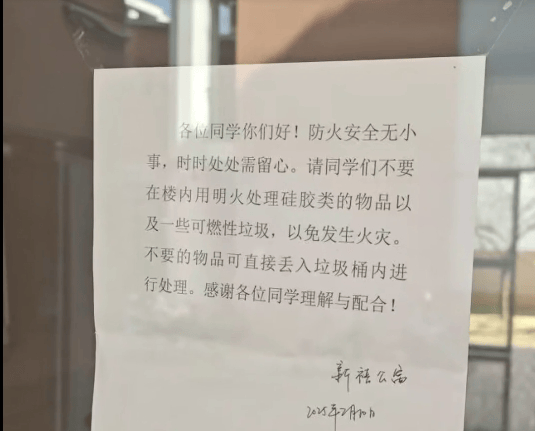 各位同学你们好！防火安全无小
事，时时处处需留心。请同学们不要
在楼内用明火处理硅胶类的物品以
及一些可燃性垃圾，以免发生火灾。
不要的物品可直接丢入垃圾桶内进
行处理。感谢各位同学理解与配合！
新禧公寓
2025年2月10日